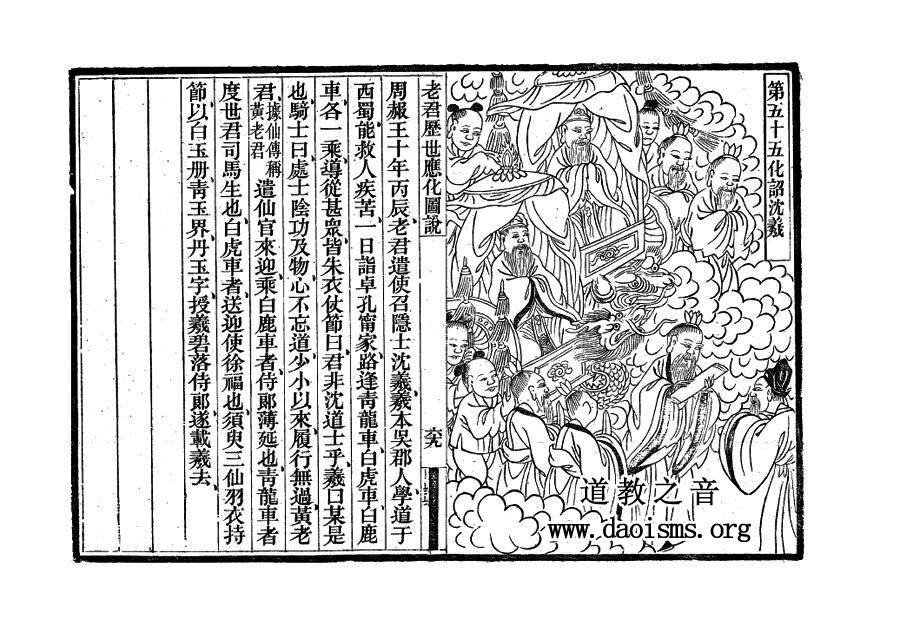 第五十五化詔沈羲
道教之音
www.daoisms.org
老君歷世應化圖說
六九
周赧王十年丙辰老君遣使召隱士沈羲羲本吳郡人學道于
西蜀能救人疾苦一日詣卓孔甯家路逢青龍車白虎車白鹿
車各一乘導從甚衆皆朱衣仗節曰君非沈道士乎羲曰某是
也騎士曰處士陰功及物心不忘道少小以來履行無過黃老
君據仙傳稱黃老君遣仙官來迎乘白鹿車者侍郎薄延也青龍車者
度世君司馬生也白虎車者送迎使徐福也須臾三仙羽衣持
節以白玉册青玉界丹玉字授羲碧落侍郎遂載羲去